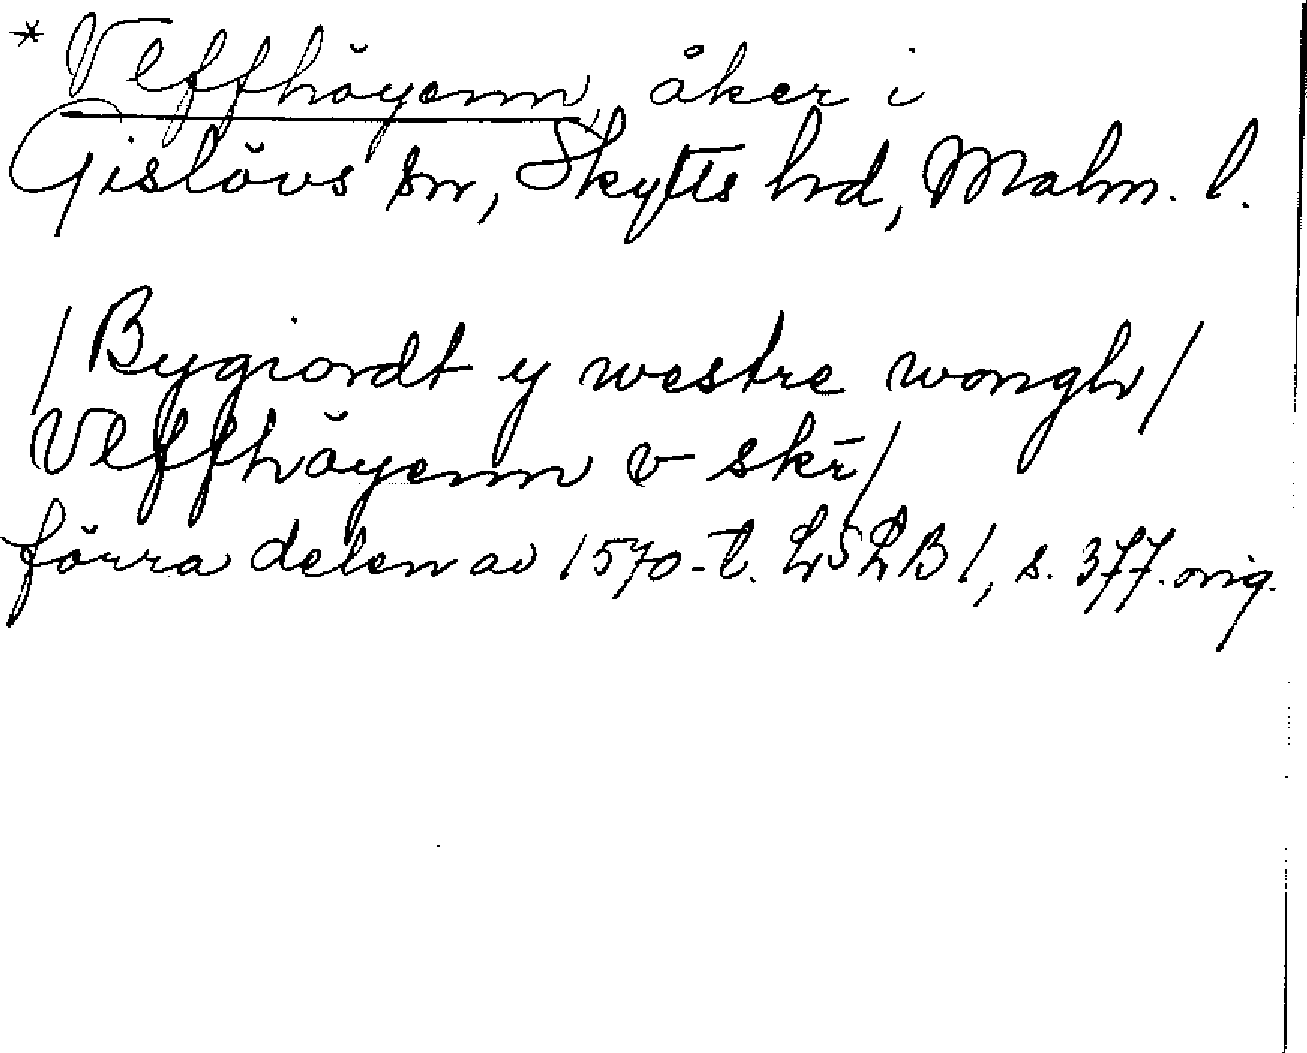 * Vlffhöyenn, åker i
Gislövs sn, Skytts hd, Malm. l.
/Bygiordt y westre wongh/
Vlffhöyenn v skr̄/
förra delen av 1570-t. LSLB 1, s. 377. orig.